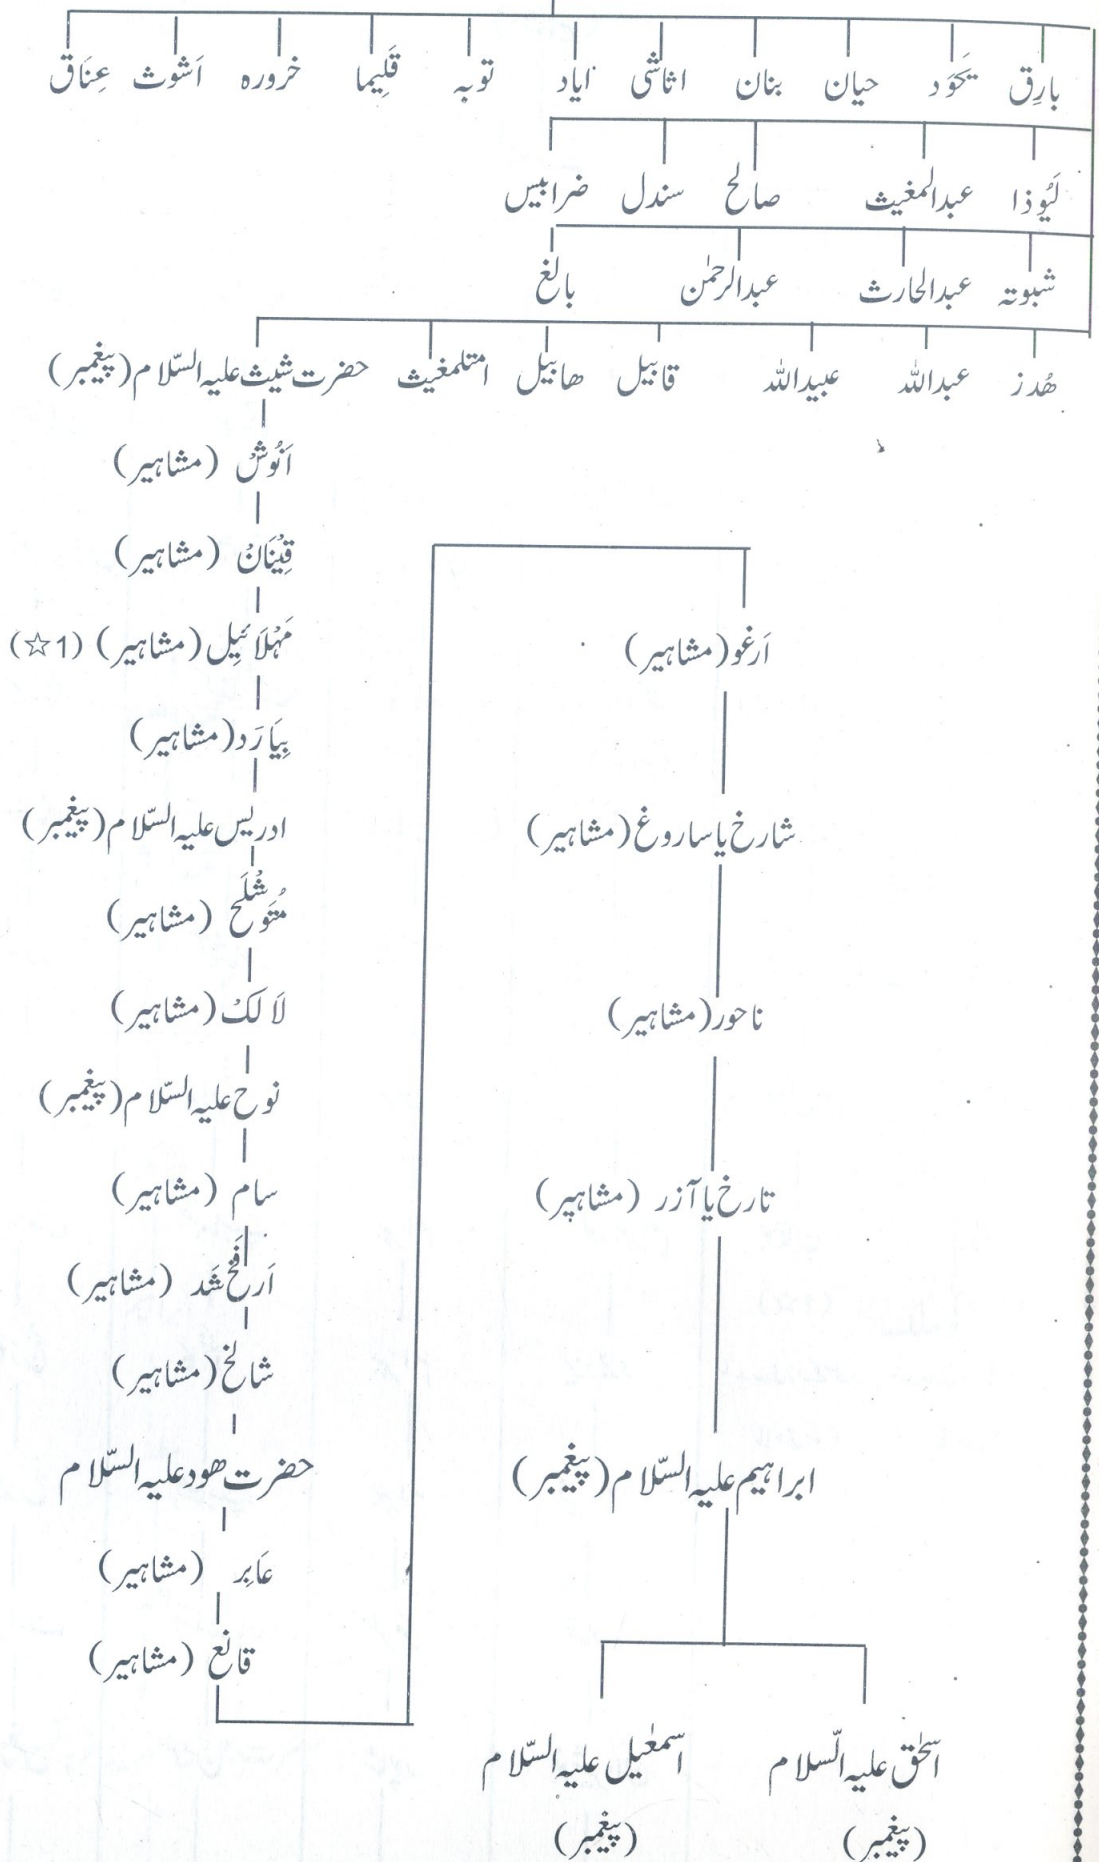 بارِق یَحَوَد حیان بنان اثاثی ایاد توبہ قَلِیما خرورہ اَشوث عِنَاق
لَیُوذا عبدالمغیث صالح سندل ضرابیس
شبوتہ عبدالحارث عبدالرحمٰن بالغ
ھُدز عبداللہ عبیداللہ قابیل ھابیل امتلمغیث حضرت شیث علیہ السّلام (پیغمبر)
اَنُوش (مشاہیر)
قِینَان (مشاہیر)
مَہْلَائیِل (مشاہیر) (1☆)
یَیَارَد (مشاہیر)
ادریس علیہ السّلام (پیغمبر)
مُتَوَشْلَح (مشاہیر)
لَالَکْ (مشاہیر)
نوح علیہ السّلام (پیغمبر)
سام (مشاہیر)
اَرفَخْشَد (مشاہیر)
شالخ (مشاہیر)
حضرت ھود علیہ السّلام
عَابِر (مشاہیر)
قانع (مشاہیر)
اَرغو (مشاہیر)
شارخ یا ساروغ (مشاہیر)
ناحور (مشاہیر)
تارخ یا آزر (مشاہپر)
ابراہیم علیہ السّلام (پیغمبر)
اسحٰق علیہ السّلام اسمعٰیل علیہ السّلام
(پیغمبر) (پیغمبر)